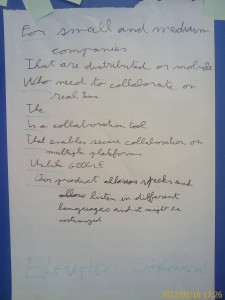 For small and medium
companies
That are distributed or mobile
Who need to collaborate on
real time
The
Is a collaboration tool
That enables secure collaboration on
multiple platforms
Unlike GOOGLE
Our product allows speeks and
allow listen in different
languages and it might be
costumized